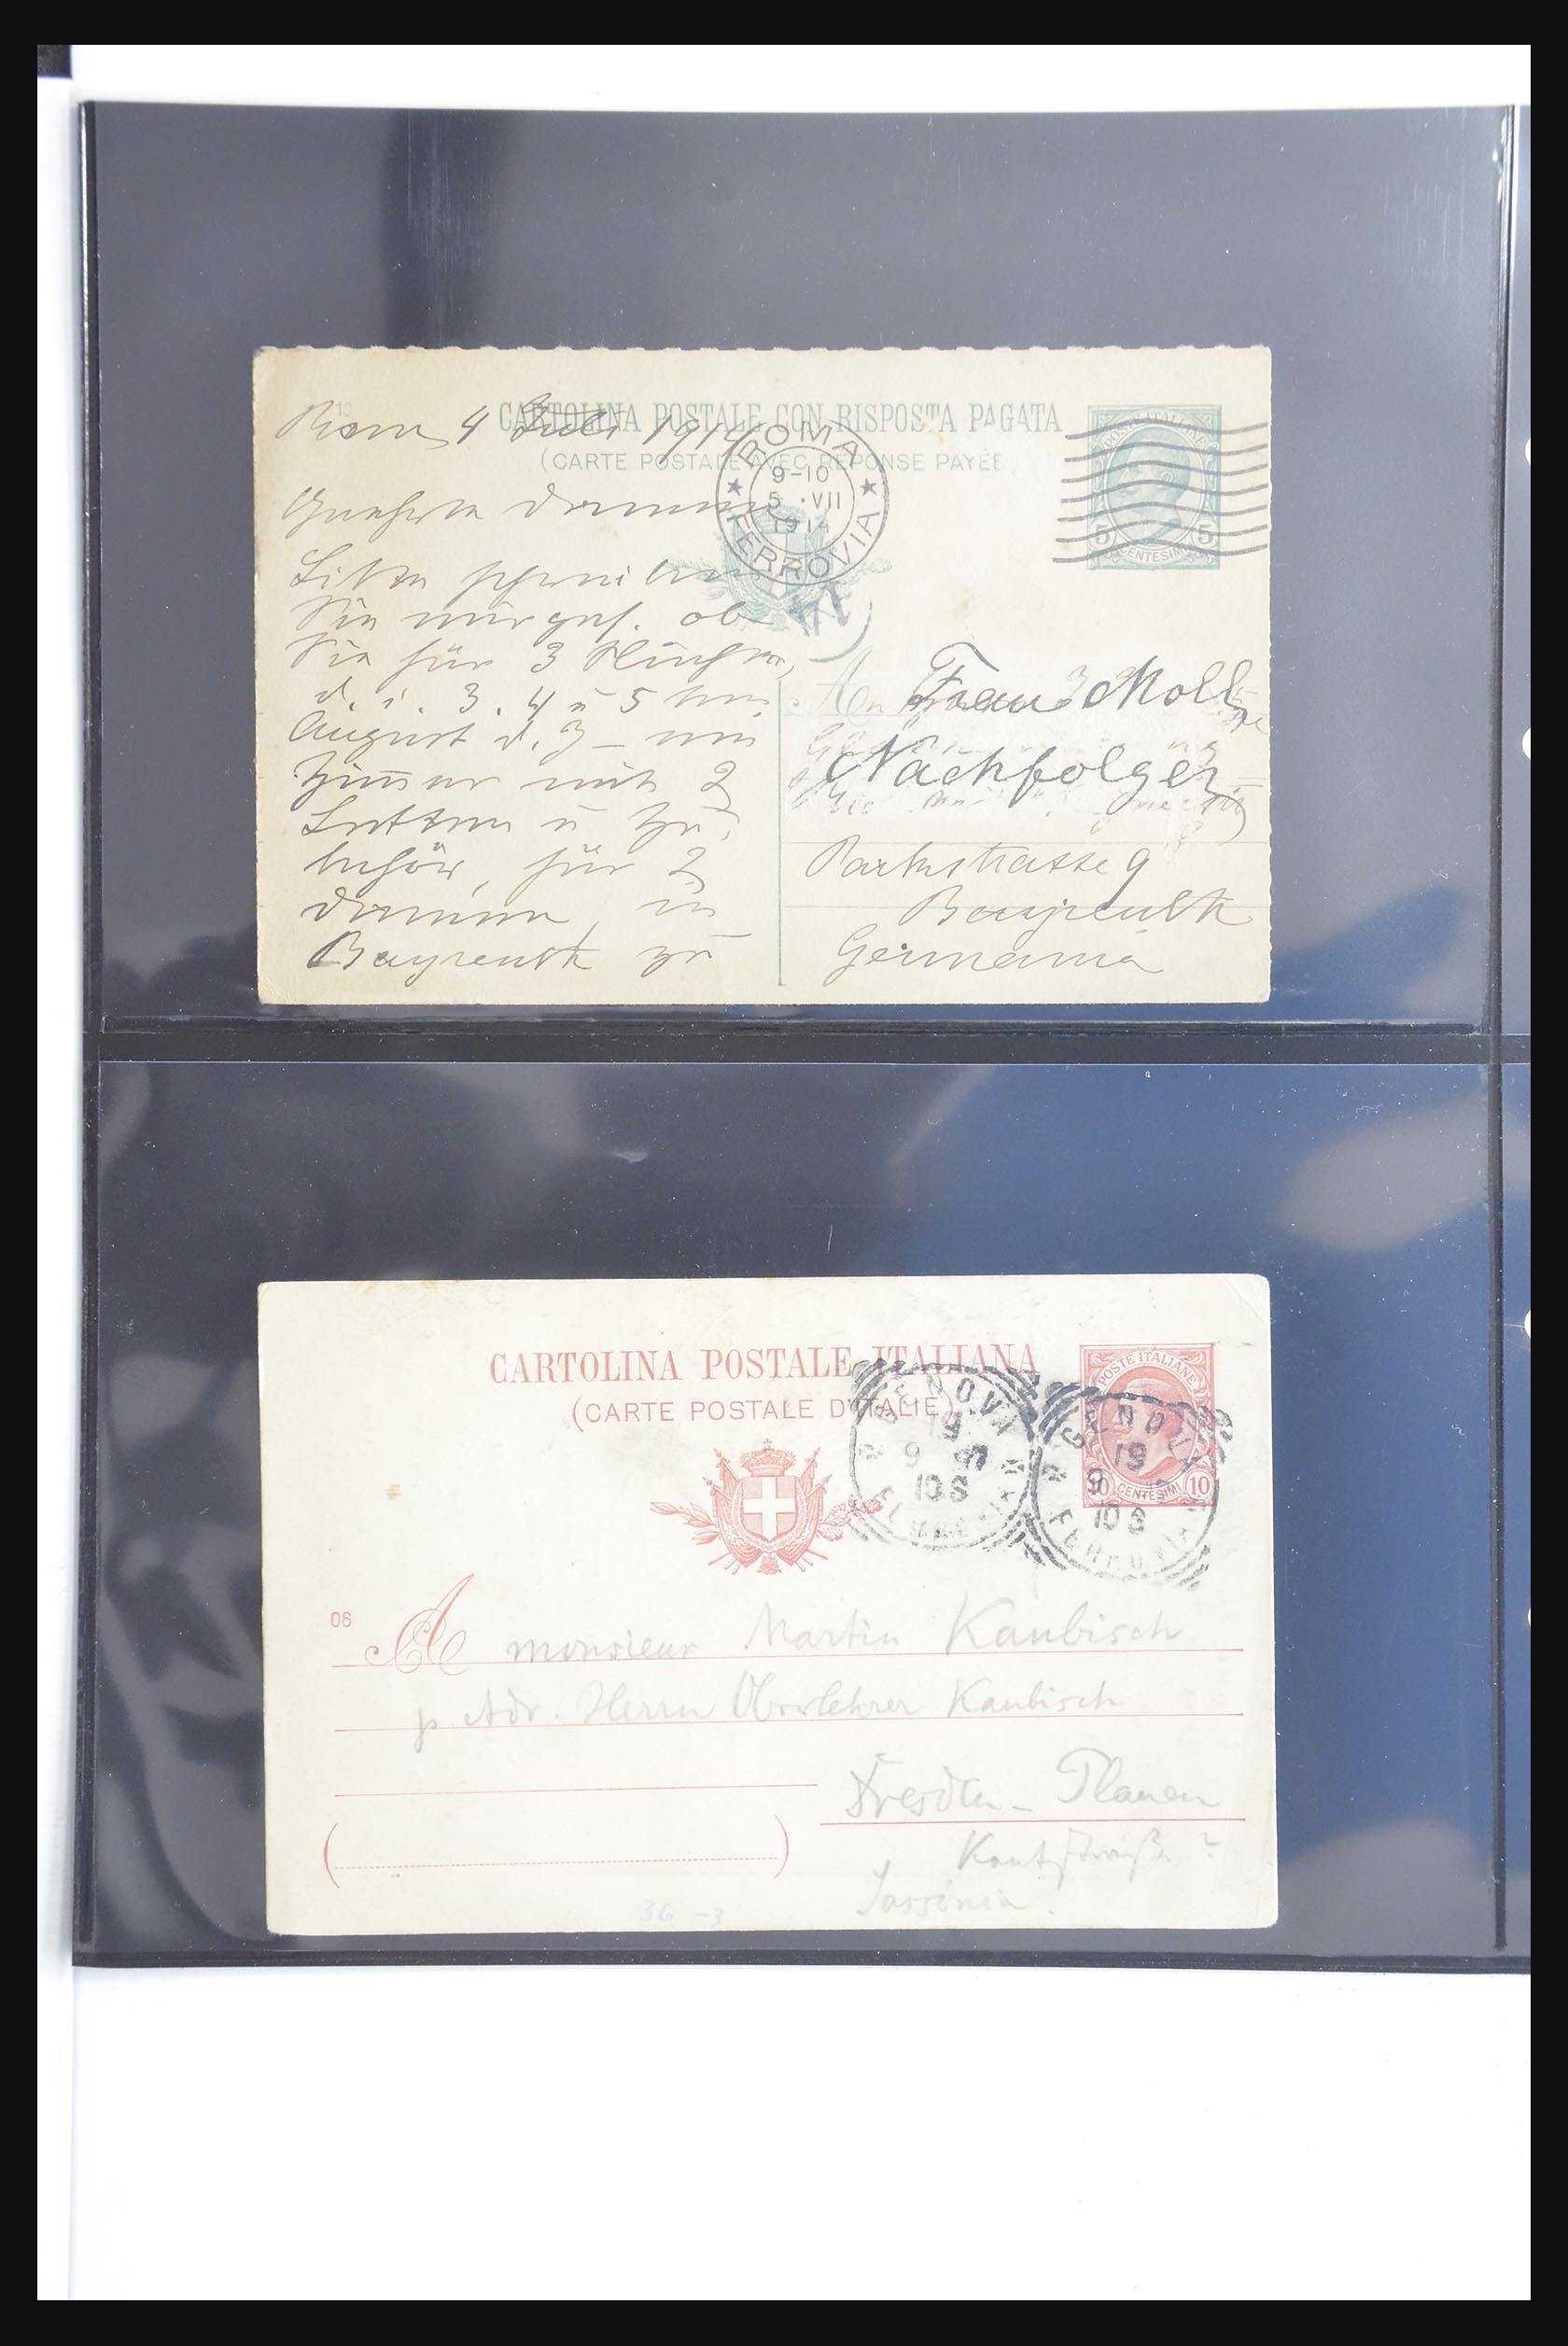 10
CARTOLINA POSTALE CON RISPOSTA PAGATA
(CARTE POSTALE AVEC RÉPONSE PAYÉE)
Rom, 4 Juli 1914
ROMA
9-10
5 · VII
1914
FERROVIA
POSTE ITALIANE
5 CENTESIMI 5
Geehrte Damen
Bitte schreiben
Sie mir gef. ob
Sie für 3 Nächte,
d. i. 3. 4 u 5 ten
August d. J. – ein
Zimmer mit 2
Betten u Zu-
behör, für 2
Damen, in
Bayreuth zu
An Frau Moll
Nachfolger
Parkstrasse 9
Bayreuth
Germania
CARTOLINA POSTALE ITALIANA
(CARTE POSTALE D'ITALIE)
POSTE ITALIANE
10 CENTESIMI 10
GENOVA
19
9
10S
FERROVIA
GENOVA
19
9
10S
FERROVIA
06
A monsieur Martin Kaubisch
p. Adr. Herrn Oberlehrer Kaubisch
Dresden - Plauen
Kantstraße 2
Sassonia.
36 -3